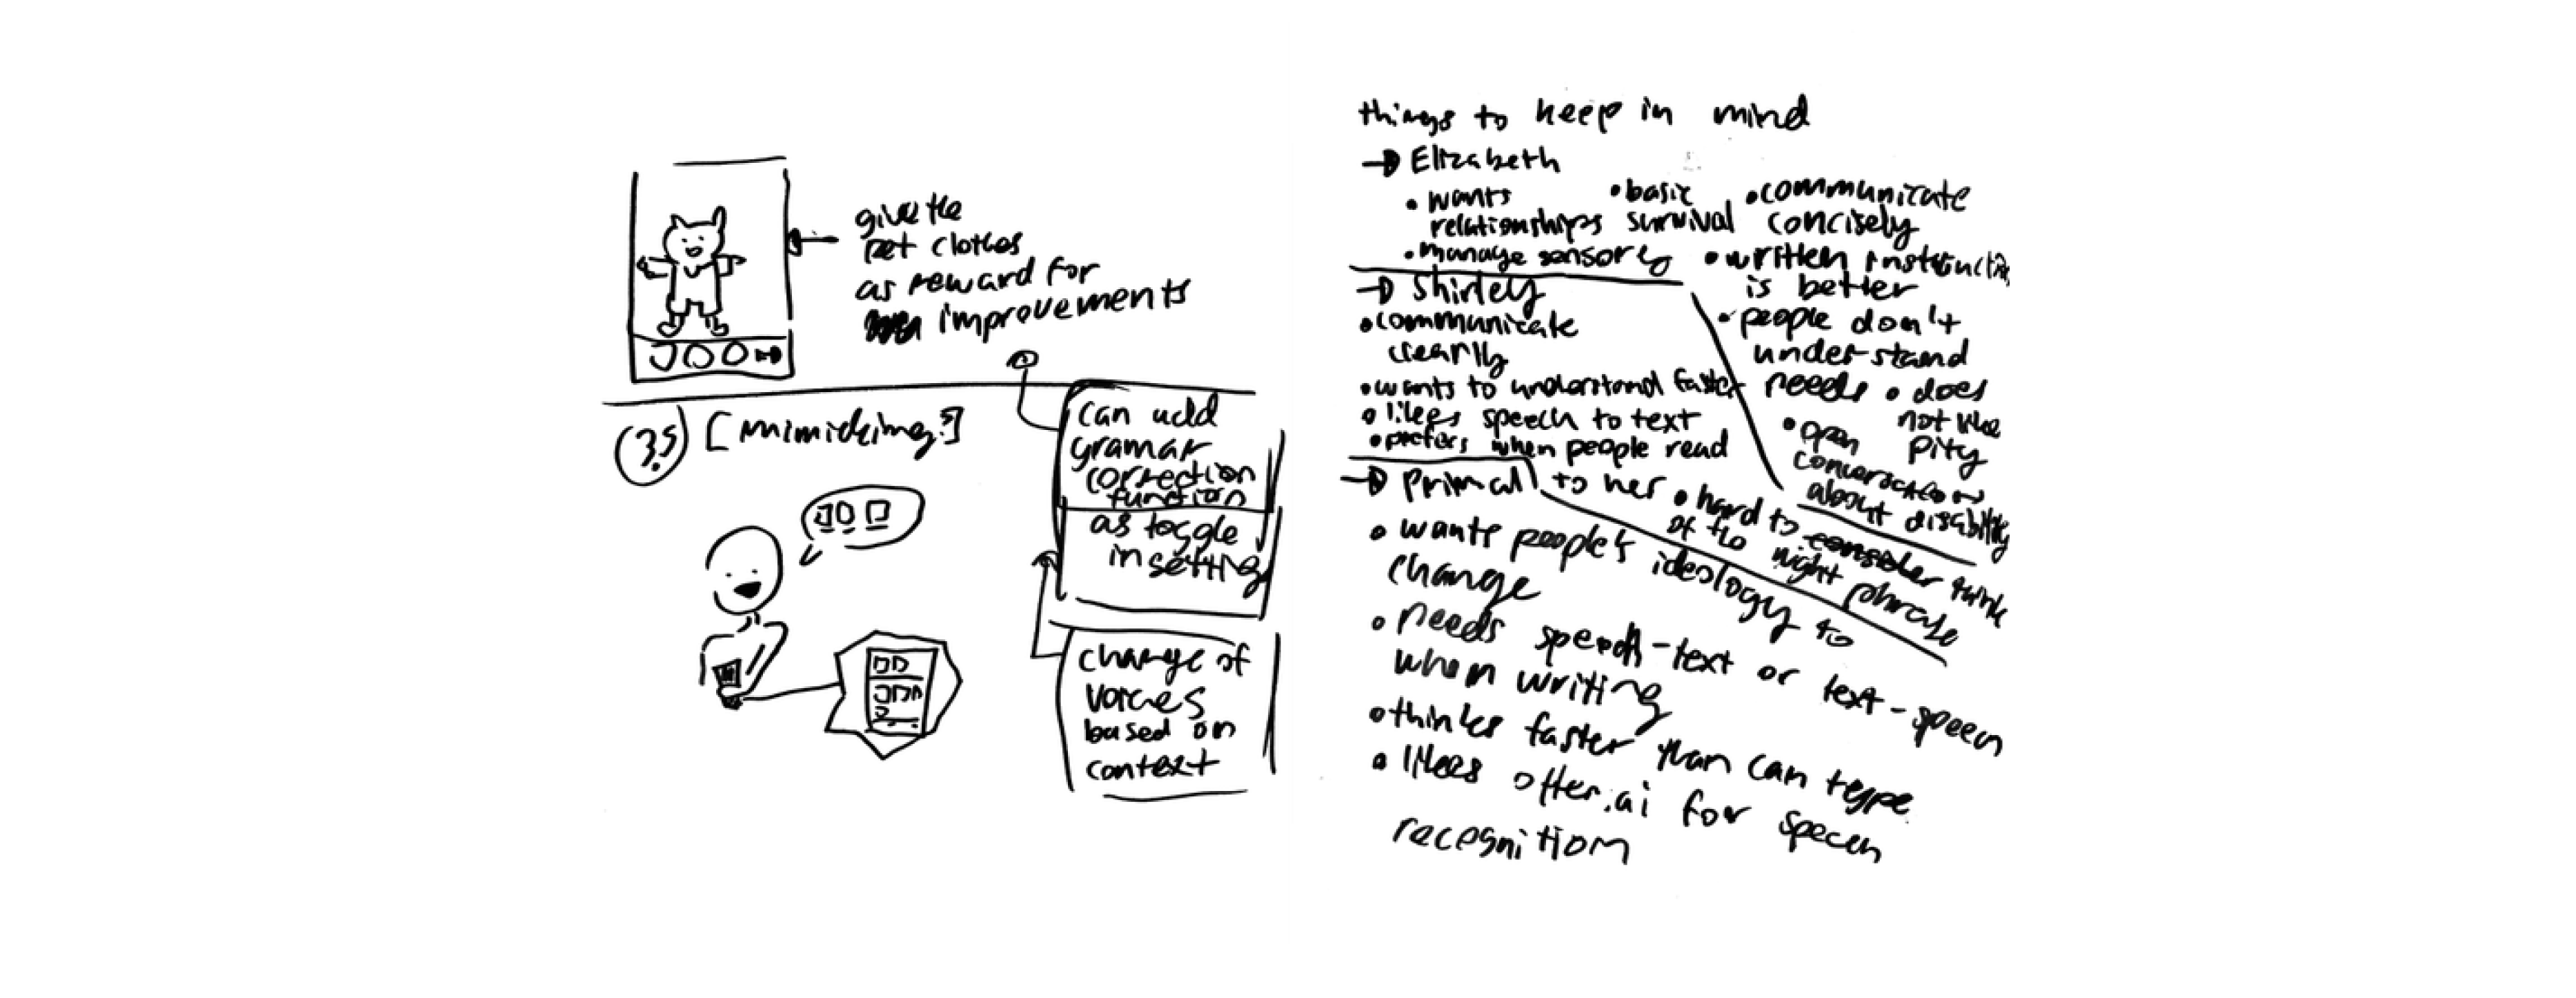 give the
pet clothes
as reward for
improvements
3.5
[mimicking?]
can add
gramar
correction
function
as toggle
in setting
change of
voices
based on
context
things to keep in mind
→ Elizabeth
• wants
relationships
• manage sensory
• basic
survival
• communicate
concisely
• written instructi
is better
• people don't
understand
needs
• does
not like
pity
• open
conversation
about disability
→ Shirley
• communicate
clearly
• wants to understand faster
• likes speech to text
• prefers when people read
to her
• hard to think
of the right phrase
→ Primal
• wants people's ideology to
change
• needs speech-text or text-speech
when writing
• thinks faster than can type
• likes otter.ai for speech
recognition